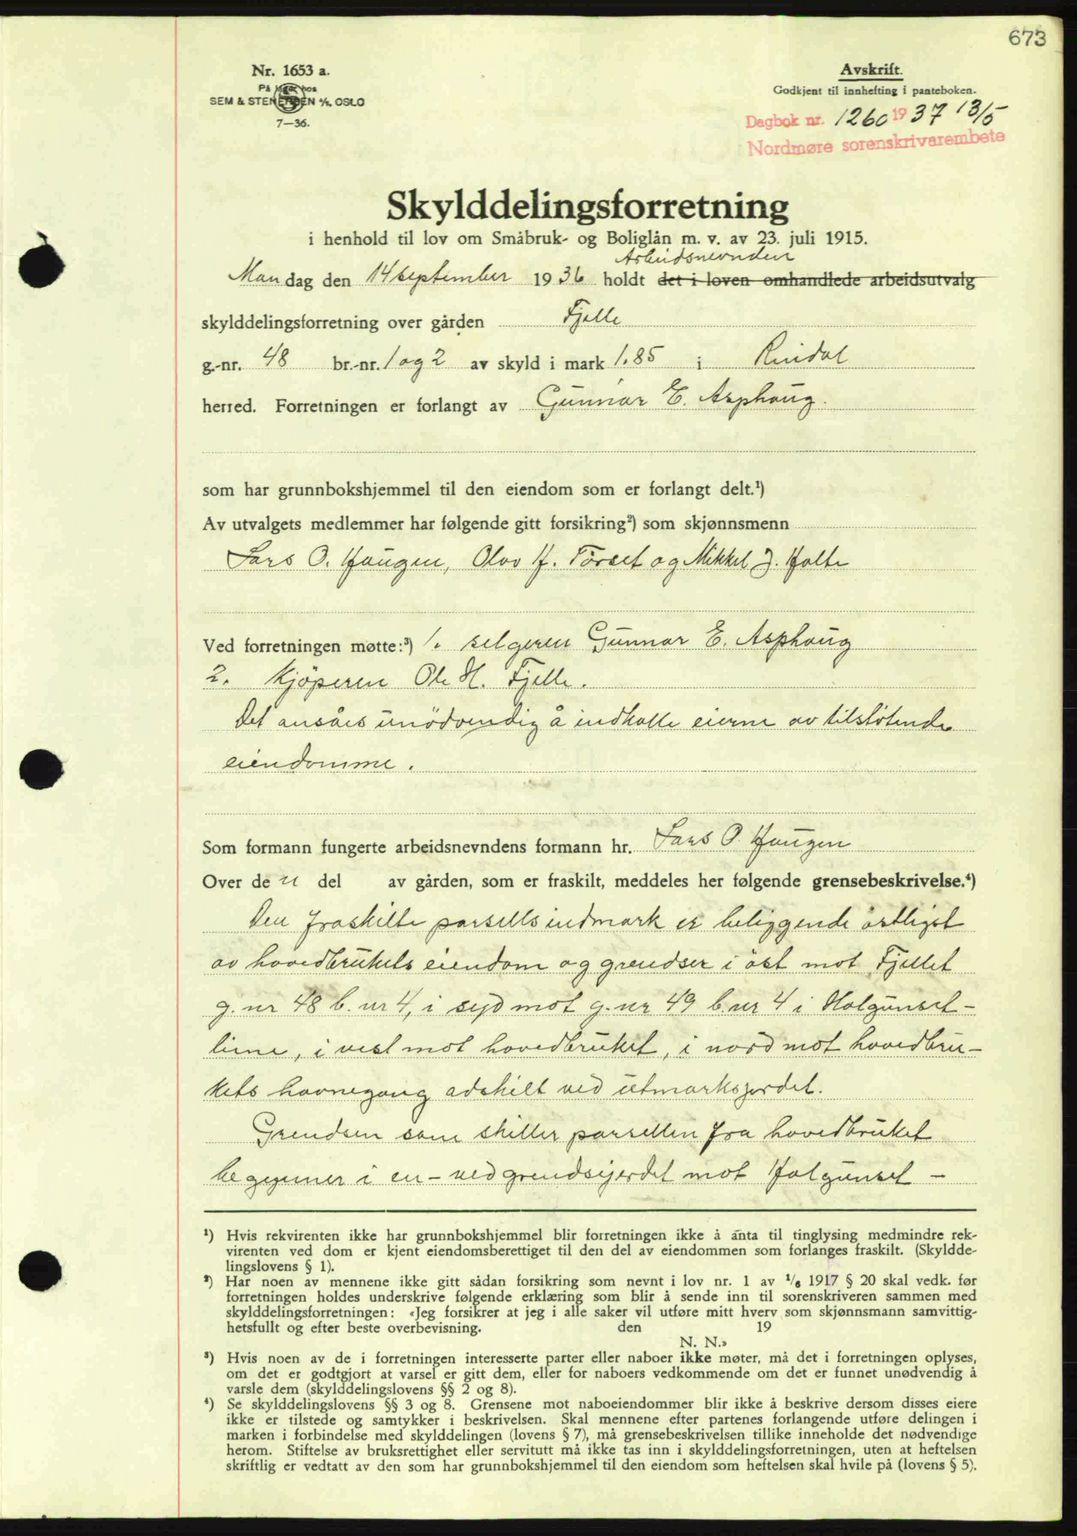 673
Nr. 1653 a.
På lager hos
SEM & STENERSEN A/S. OSLO
7—36.
Avskrift.
Godkjent til innhefting i panteboken.
Dagbok nr. 1260 1937 13/5
Nordmøre sorenskrivarembete
Skylddelingsforretning
i henhold til lov om Småbruk- og Boliglån m. v. av 23. juli 1915.
Arbeidsnevnden
Mandag den 14 september 1936 holdt det i loven omhandlede arbeidsutvalg
skylddelingsforretning over gården Fjelle
g.-nr. 48 br.-nr. 1 og 2 av skyld i mark 1.85 i Rindal
herred. Forretningen er forlangt av Gunnar E. Asphaug.
som har grunnbokshjemmel til den eiendom som er forlangt delt.¹)
Av utvalgets medlemmer har følgende gitt forsikring²) som skjønnsmenn
Lars O. Haugen, Olav H. Tørset og Mikkel J. Holte
Ved forretningen møtte:³) 1. selgeren Gunnar E. Asphaug
2. Kjöperen Ole H. Fjelle.
Det ansåes unödvendig å indkalle eierne av tilstötende
eiendomme.
Som formann fungerte arbeidsnevndens formann hr. Lars O. Haugen
Over den del av gården, som er fraskilt, meddeles her følgende grensebeskrivelse.⁴)
Den fraskilte parsells indmark er beliggende östligst
av hovedbrukets eiendom og grendser i öst mot Fjellet
g.nr 48 b.nr 4, i syd mot g.nr 49 b.nr 4 i Halgunset-
liene, i vest mot hovedbruket, i nord mot hovedbru-
kets havnegang adskilt ved utmarksgjerdet.
Grendsen som skiller parsellen fra hovedbruket
begynner i en - ved grendsegjerdet mot Halgunset -
¹) Hvis rekvirenten ikke har grunnbokshjemmel blir forretningen ikke å anta til tinglysing medmindre rek-
virenten ved dom er kjent eiendomsberettiget til den del av eiendommen som forlanges fraskilt. (Skyldde-
lingslovens § 1).
²) Har noen av mennene ikke gitt sådan forsikring som nevnt i lov nr. 1 av ¹/₆ 1917 § 20 skal vedk. før
forretningen holdes underskrive følgende erklæring som blir å sende inn til sorenskriveren sammen med
skylddelingsforretningen: «Jeg forsikrer at jeg i alle saker vil utføre mitt hverv som skjønnsmann samvittig-
hetsfullt og efter beste overbevisning. den 19
N. N.»
³) Hvis noen av de i forretningen interesserte parter eller naboer ikke møter, må det i forretningen oplyses,
om det er godtgjort at varsel er gitt dem, eller for naboers vedkommende om det er funnet unødvendig å
varsle dem (skylddelingslovens §§ 2 og 8).
⁴) Se skylddelingslovens §§ 3 og 8. Grensene mot naboeiendommer blir ikke å beskrive dersom disses eiere
ikke er tilstede og samtykker i beskrivelsen. Skal mennene efter partenes forlangende utføre delingen i
marken i forbindelse med skylddelingen (lovens § 7), må grensebeskrivelsen tillike inneholde det nødvendige
herom. Stiftelse av bruksrettighet eller servitutt må ikke tas inn i skylddelingsforretningen, uten at heftelsen
skriftlig er vedtatt av den som har grunnbokshjemmel til den eiendom som heftelsen skal hvile på (lovens § 5).